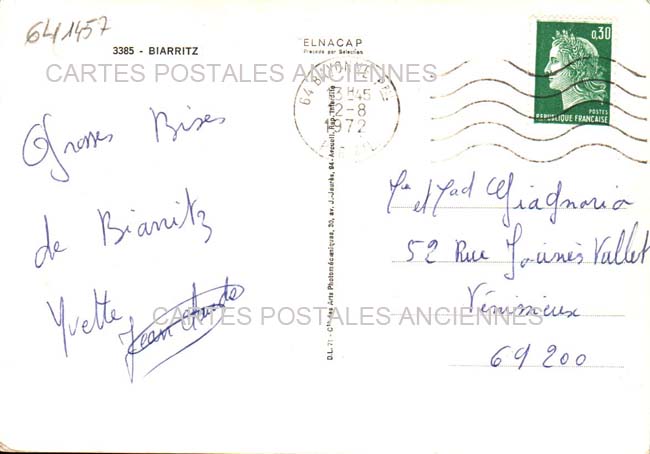 641457
3385 - BIARRITZ
ELNACAP
Procédé par Sélection
0,30
POSTES
REPUBLIQUE FRANÇAISE
CARTES POSTALES ANCIENNES
64 BAYONNE
13H45
2-8
1972
Grosses Bises
de Biarritz
Yvette
Jean
Mr et Mad Giagnorio
52 Rue Vallet
Vénissieux
69200
D.L. 71 - Cie des Arts Photomécaniques, 30, av. J.-Jaurès, 94 - Arcueil, Rep. Interdite
CARTES POSTALES ANCIENNES